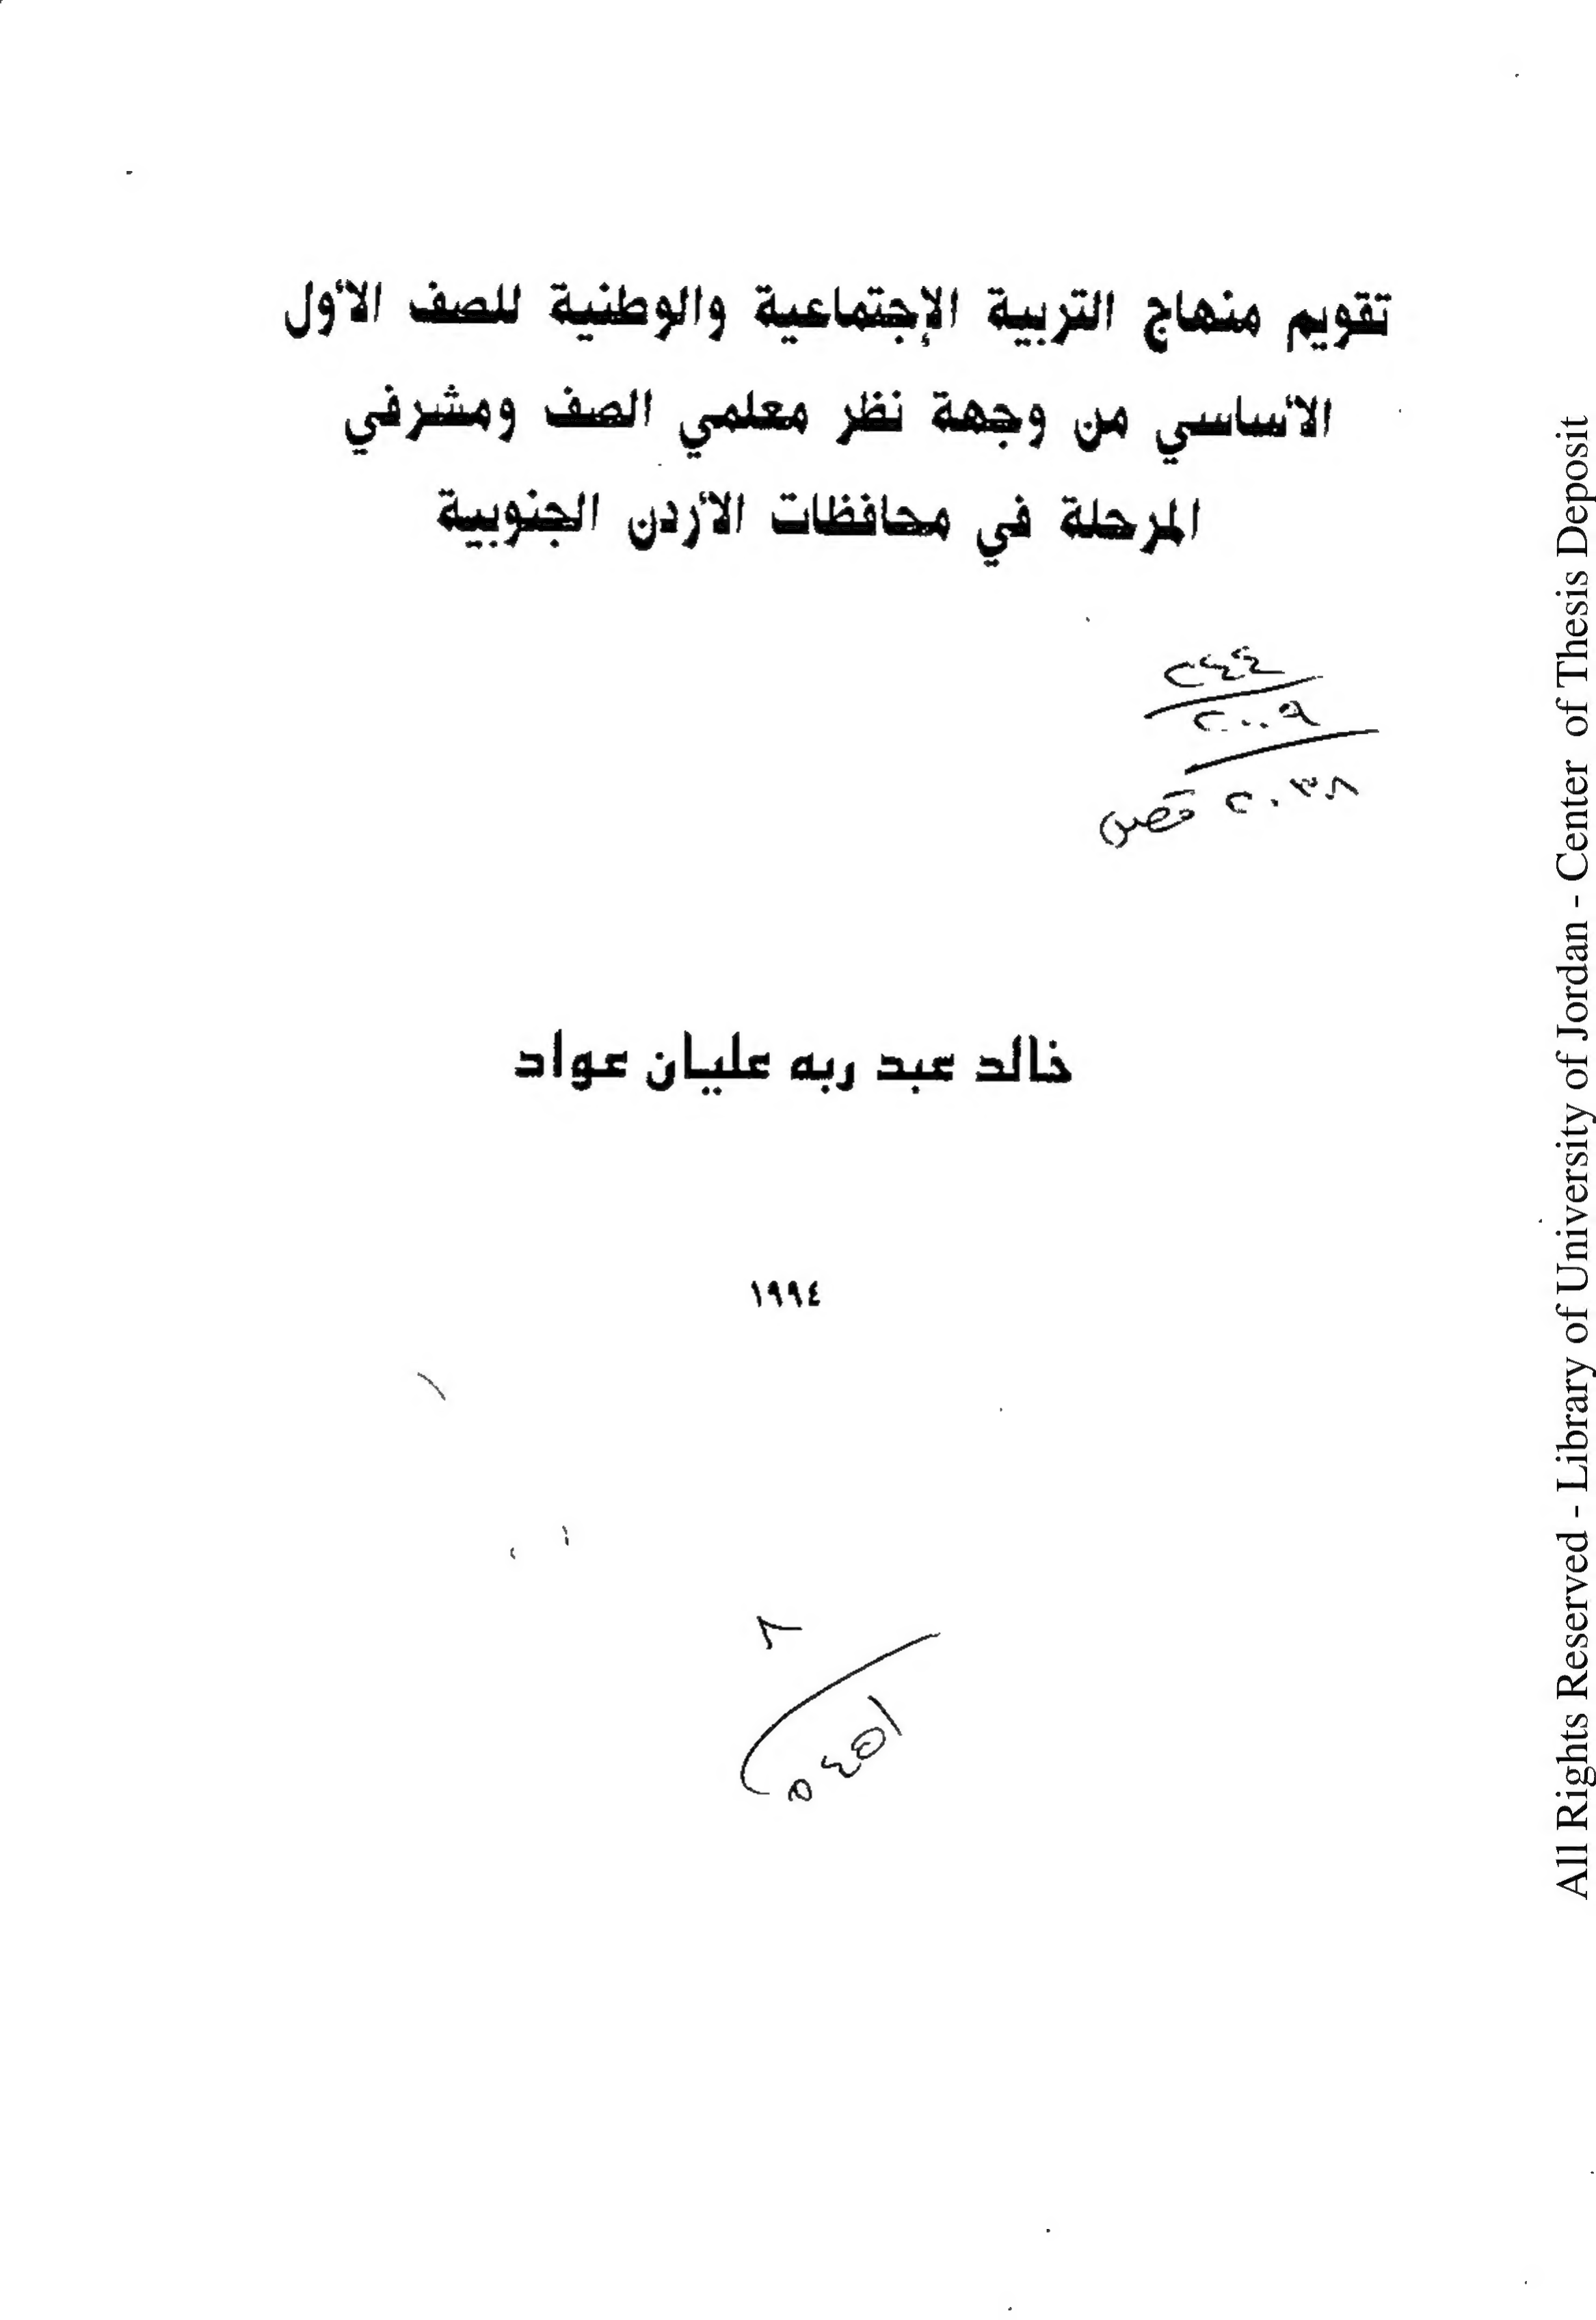 تقويم منهاج التربية الإجتماعية والوطنية للصف الأول
الأساسي من وجهة نظر معلمي الصف ومشرفي
المرحلة في محافظات الأردن الجنوبية
٢٤٤
٢٠٠٩
٢٠٣٨
خالد عبد ربه عليان عواد
١٩٩٤
٨
All Rights Reserved - Library of University of Jordan - Center of Thesis Deposit